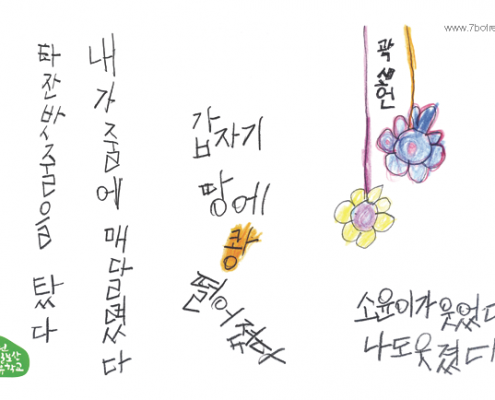 www.7bofæ
곽
헌
타잔밧줄을 탔다
내가 줄에 매달렸다
갑자기
땅에
쾅
떨어졌다
소윤이가 웃었다
나도 웃겼다